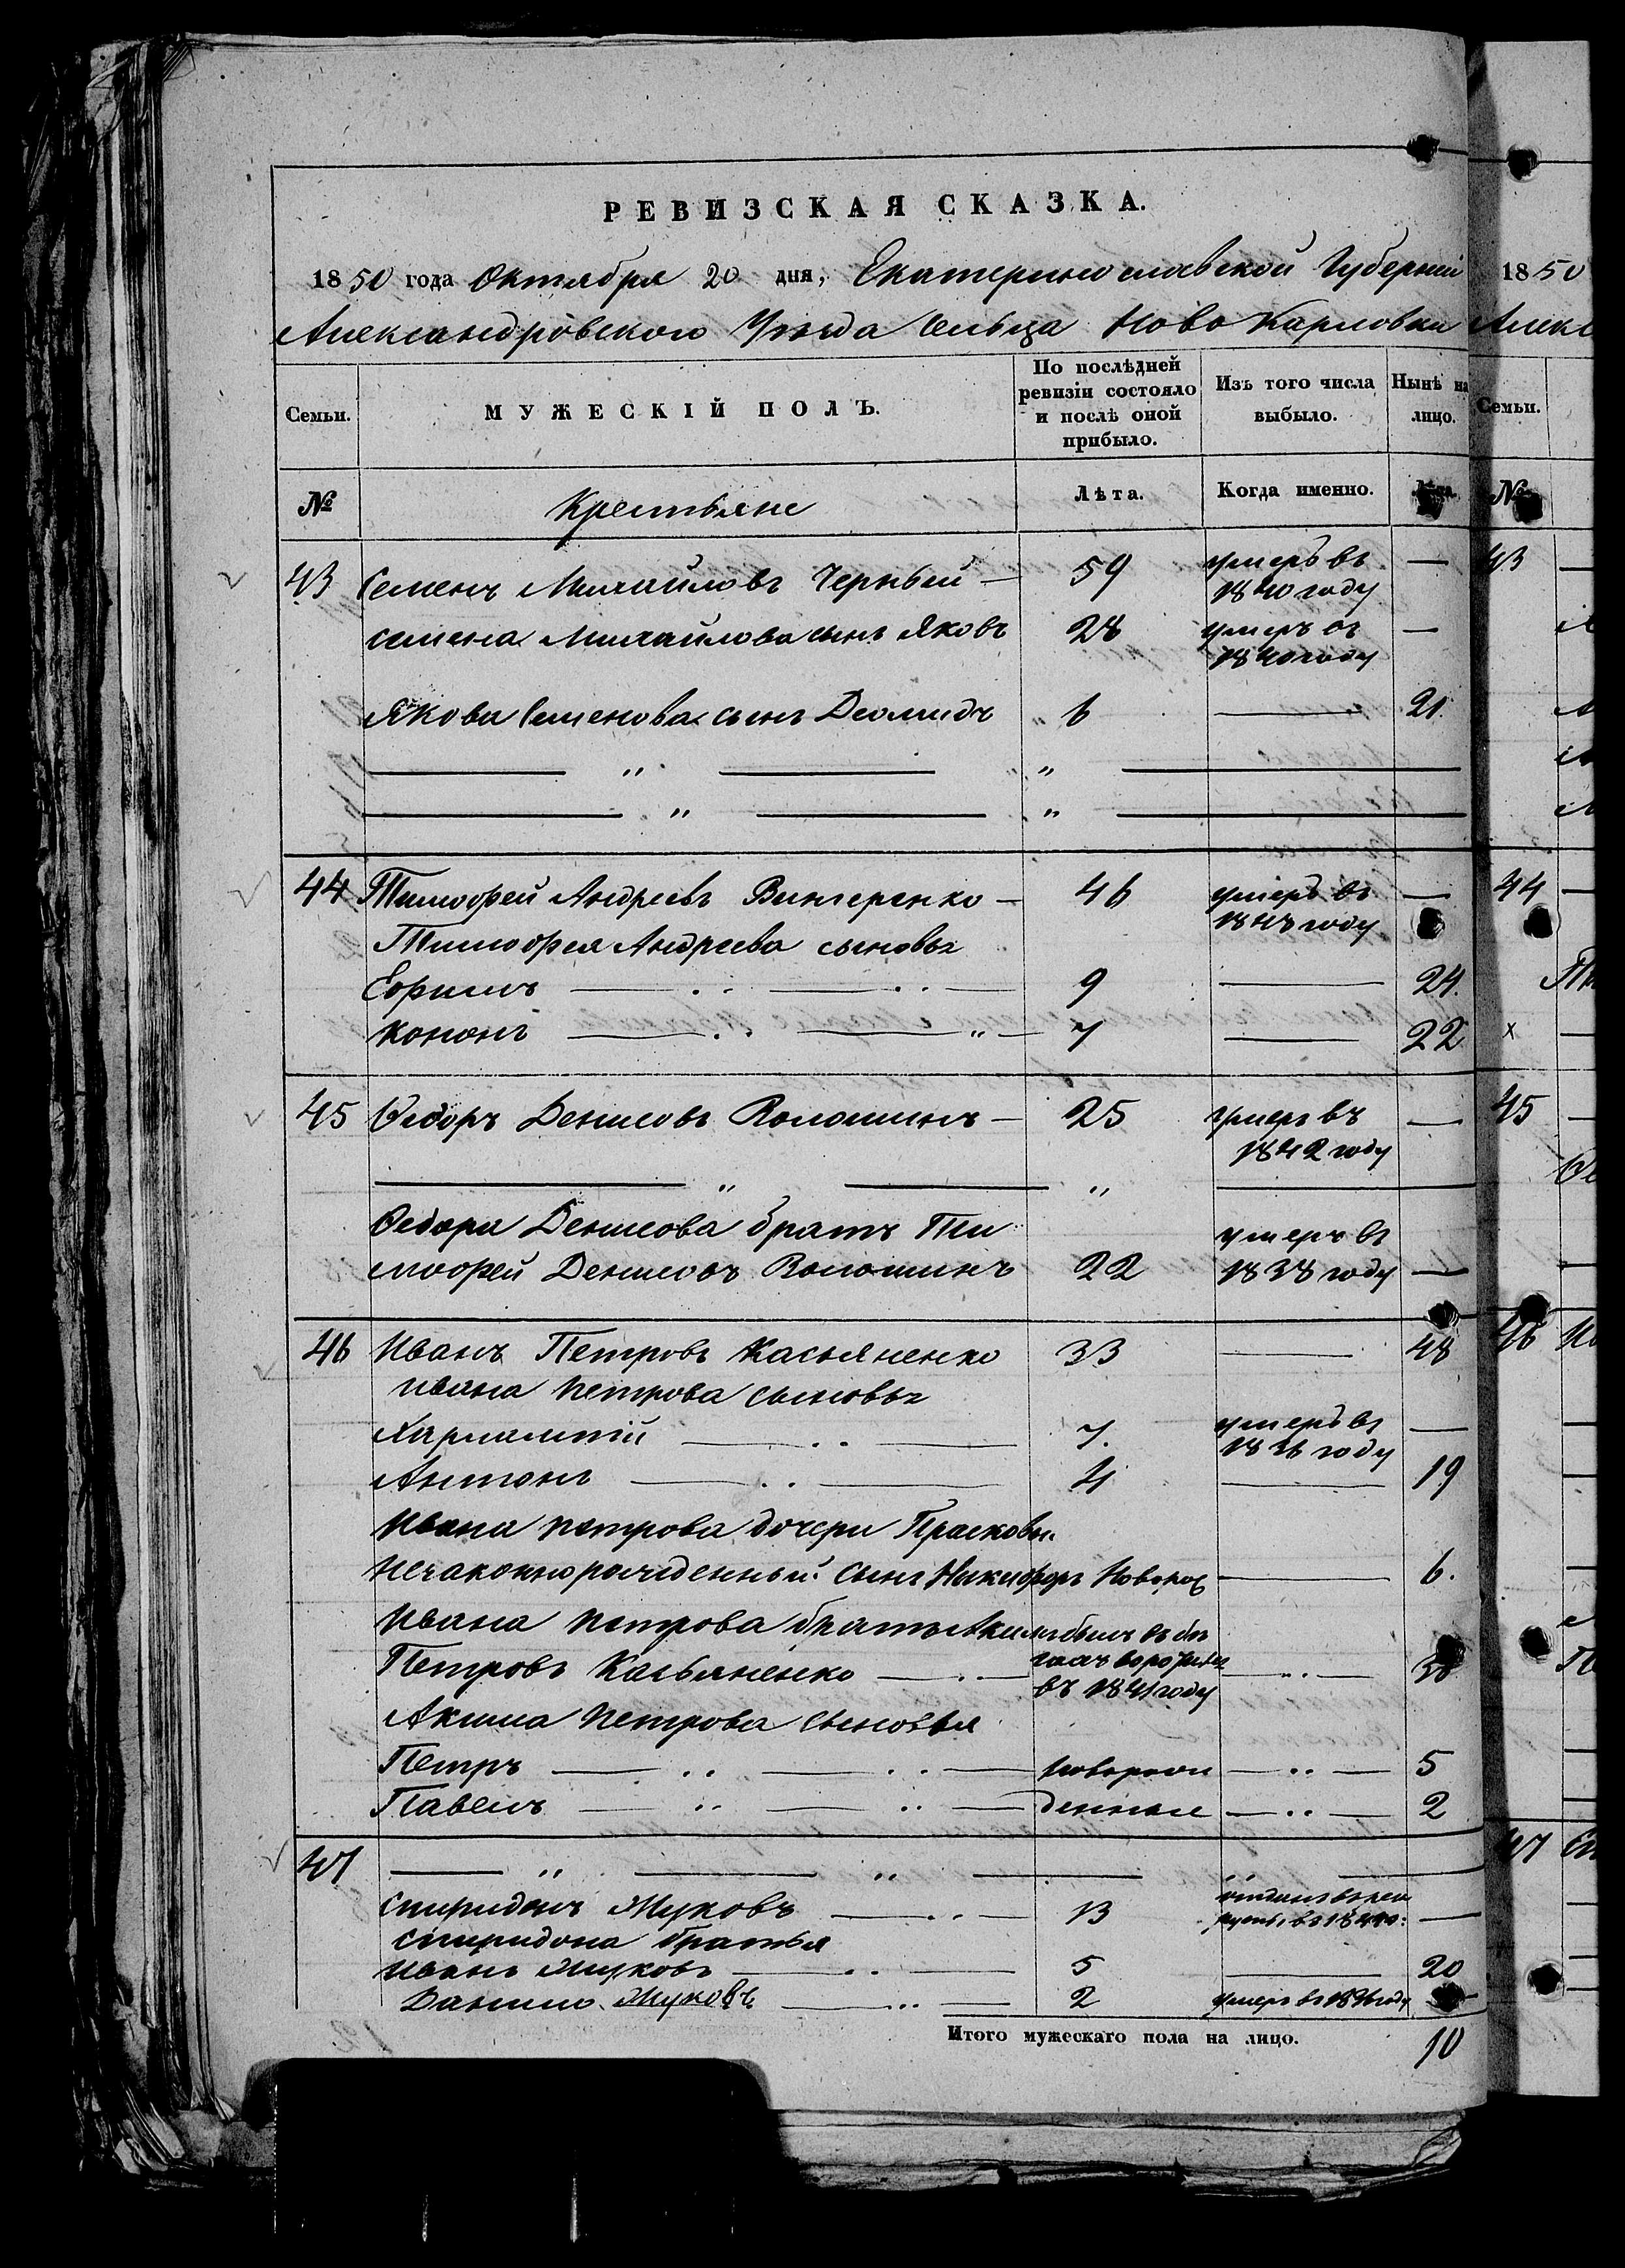 РЕВИЗСКАЯ СКАЗКА.
1850 года Октября 20 дня, Екатеринославской Губерніи
Александровского Уѣзда Сельца Ново Карловки
Семьи.
МУЖЕСКІЙ ПОЛЪ.
По послѣдней ревизіи состояло и послѣ оной прибыло.
Изъ того числа выбыло.
Нынѣ на лицо.
№
Крестьяне
Лѣта.
Когда именно.
Лѣта.
43 Семенъ Михайловъ Черный — 59 умеръ въ 1840 году —
Семена Михайлова сынъ Яковъ 28 умеръ въ 1840 году —
Якова Семенова сынъ Деомидъ 6 — 21.
44 Тимофей Андреевъ — 46 умеръ въ 1848 году —
Тимофея Андреева сыновья
Ефимъ — 9 — 24.
Кононъ — 7 — 22
45 Федоръ Денисовъ Волошинъ — 25 умеръ въ 1842 году —
Федора Денисова братъ Ти
мофей Денисовъ Волошинъ 22 умеръ въ 1838 году —
46 Иванъ Петровъ Касьяненко 33 — 48
Ивана Петрова сыновья
Харлампій — 7. умеръ въ году —
Антонъ — 4 — 19
Ивана Петрова дочери Прасковьи
незаконнорожденный сынъ Никифоръ Новорож — 6.
Ивана Петрова братъ Акимъ былъ въ бѣ
Петровъ Касьяненко — гахъ въ 1841 году —
Акима Петрова сыновья
Петръ — новорож — 5
Павелъ — денные — 2
47
Спиридонъ Жуковъ — 13 отданъ въ рекруты въ —
Спиридона братья
Иванъ Жуковъ — 5 — 20
Данило Жуковъ — 2 умеръ въ году —
Итого мужескаго пола на лицо. 10
1850
Алекс
Семьи.
№
43
44
45
46
47